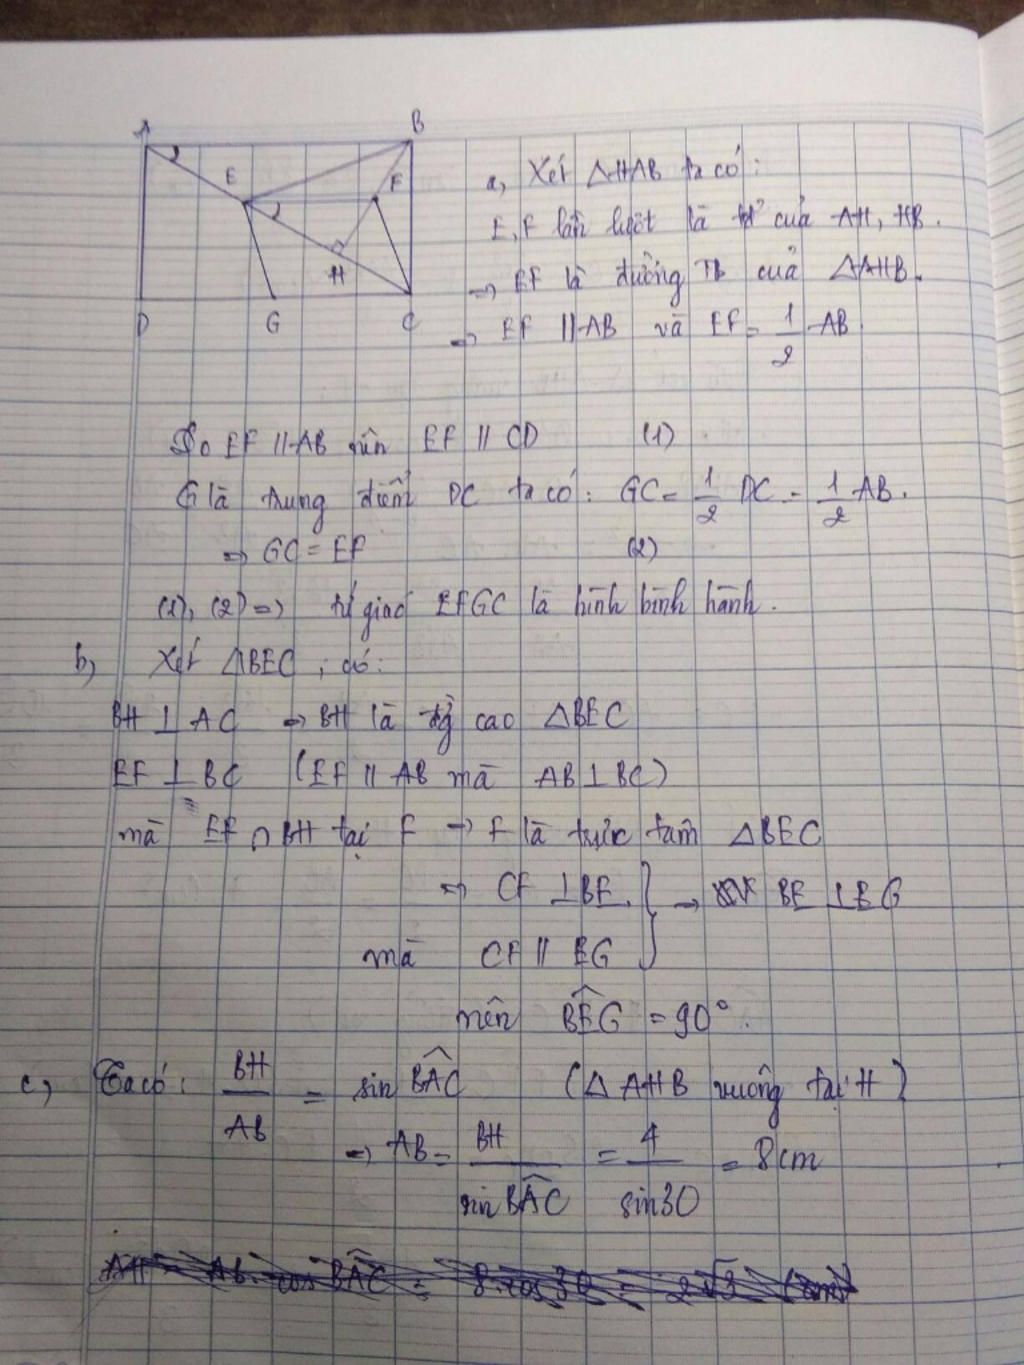 A
B
E
F
H
D
G
C
a, Xét ΔHAB ta có:
E, F lần lượt là tđ của AH, HB.
⇒ EF là đường TB của ΔAHB.
⇒ EF // AB và EF = 1/2 AB
Do EF // AB nên EF // CD (1)
G là trung điểm DC ta có: GC = 1/2 DC = 1/2 AB.
⇒ GC = EF (2)
(1), (2) ⇒ tứ giác EFGC là hình bình hành.
b, Xét ΔBEC, có:
BH ⊥ AC ⇒ BH là đg cao ΔBEC
EF ⊥ BC (EF // AB mà AB ⊥ BC)
mà EF ∩ BH tại F → F là trực tâm ΔBEC
⇒ CF ⊥ BE. } → BE ⊥ EG
mà CF // EG
nên BEG = 90°.
c, Ta có: BH/AB = sin BAC (Δ AHB vuông tại H)
⇒ AB = BH/sin BAC = 4/sin30 = 8cm
AH = AB. cos BAC = 8.cos 30 = 2√3 (cm)